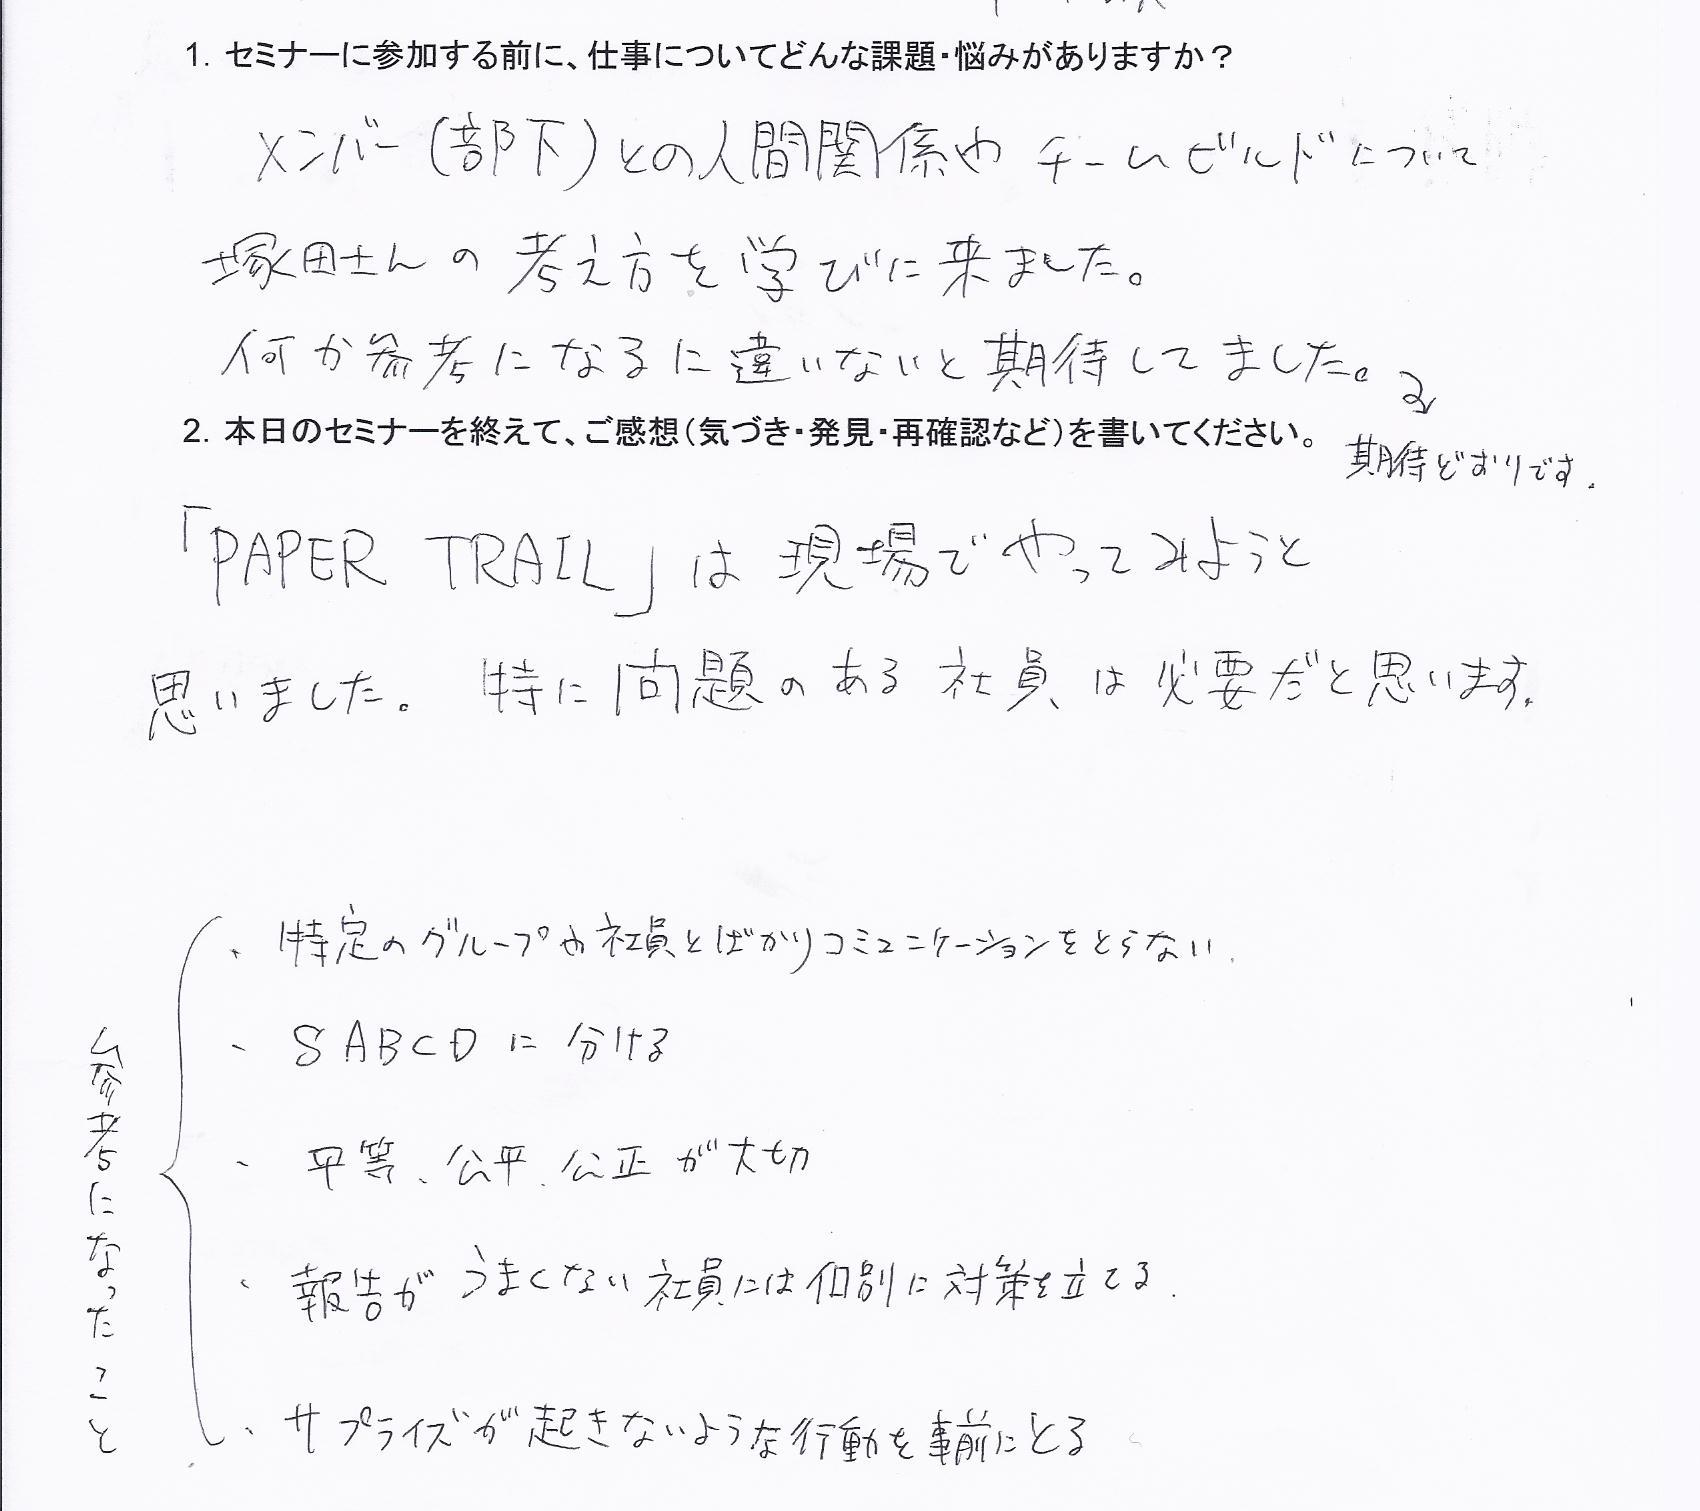 1. セミナーに参加する前に、仕事についてどんな課題・悩みがありますか？
メンバー(部下)との人間関係や チームビルドについて
塚田さんの考え方を学びに来ました。
何か参考になるに違いないと期待してました。
2. 本日のセミナーを終えて、ご感想（気づき・発見・再確認など）を書いてください。
期待どおりです.
「PAPER TRAIL」は現場でやってみようと
思いました。特に問題のある社員は必要だと思います.
参考になったこと
・特定のグループや社員とばかりコミュニケーションをとらない.
・SABCDに分ける
・平等、公平、公正が大切
・報告がうまくない社員には個別に対策を立てる.
・サプライズが起きないような行動を事前にとる